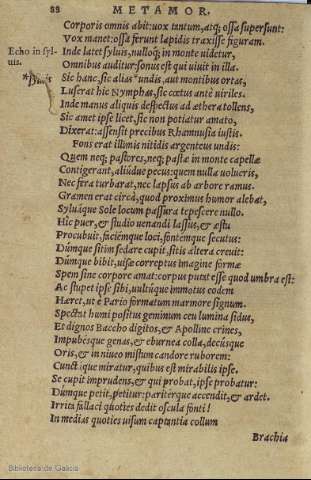 88 METAMOR.
Corporis omnis abit: vox tantum, atq; ossa supersunt:
Vox manet: ossa ferunt lapidis traxisse figuram.
Echo in syl-
uis.
Inde latet syluis, nulloq; in monte uidetur,
Omnibus auditur: sonus est qui uiuit in illa.
Sic hanc, sic alias *undis, aut montibus ortas,
Luserat hic Nymphas, sic cœtus antè uiriles.
Inde manus aliquis despectus ad æthera tollens,
Sic amet ipse licet, sic non potiatur amato,
Dixerat: assensit precibus Rhamnusia iustis.
Fons erat illimis nitidis argenteus undis:
Quem neq; pastores, neq; pastæ in monte capellæ
Contigerant, aliudue pecus: quem nulla uolucris,
Nec fera turbarat, nec lapsus ab arbore ramus.
Gramen erat circà, quod proximus humor alebat,
Syluáque Sole locum passura tepescere nullo.
Hic puer, & studio uenandi lassus, & æstu
Procubuit, faciemque loci, fontemque secutus:
Dúmque sitim sedare cupit, sitis altera creuit:
Dúmque bibit, uisæ correptus imagine formæ
Spem sine corpore amat: corpus putat esse quod umbra est:
Ac stupet ipse sibi, uultúque immotus eodem
Hæret, ut è Pario formatum marmore signum.
Spectat humi positus geminum ceu lumina sidus,
Et dignos Baccho digitos, & Apolline crines,
Impubesque genas, & eburnea colla, decúsque
Oris, & in niueo mistum candore ruborem:
Cunctáque miratur, quibus est mirabilis ipse.
Se cupit imprudens, & qui probat, ipse probatur:
Dúmque petit, petitur: pariterque accendit, & ardet.
Irrita fallaci quoties dedit oscula fonti!
In medias quoties uisum captantia collum
Brachia
Biblioteca de Galicia